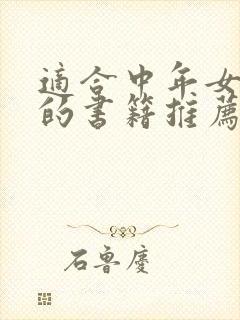 適合中年女
的書籍推薦
石魯慶